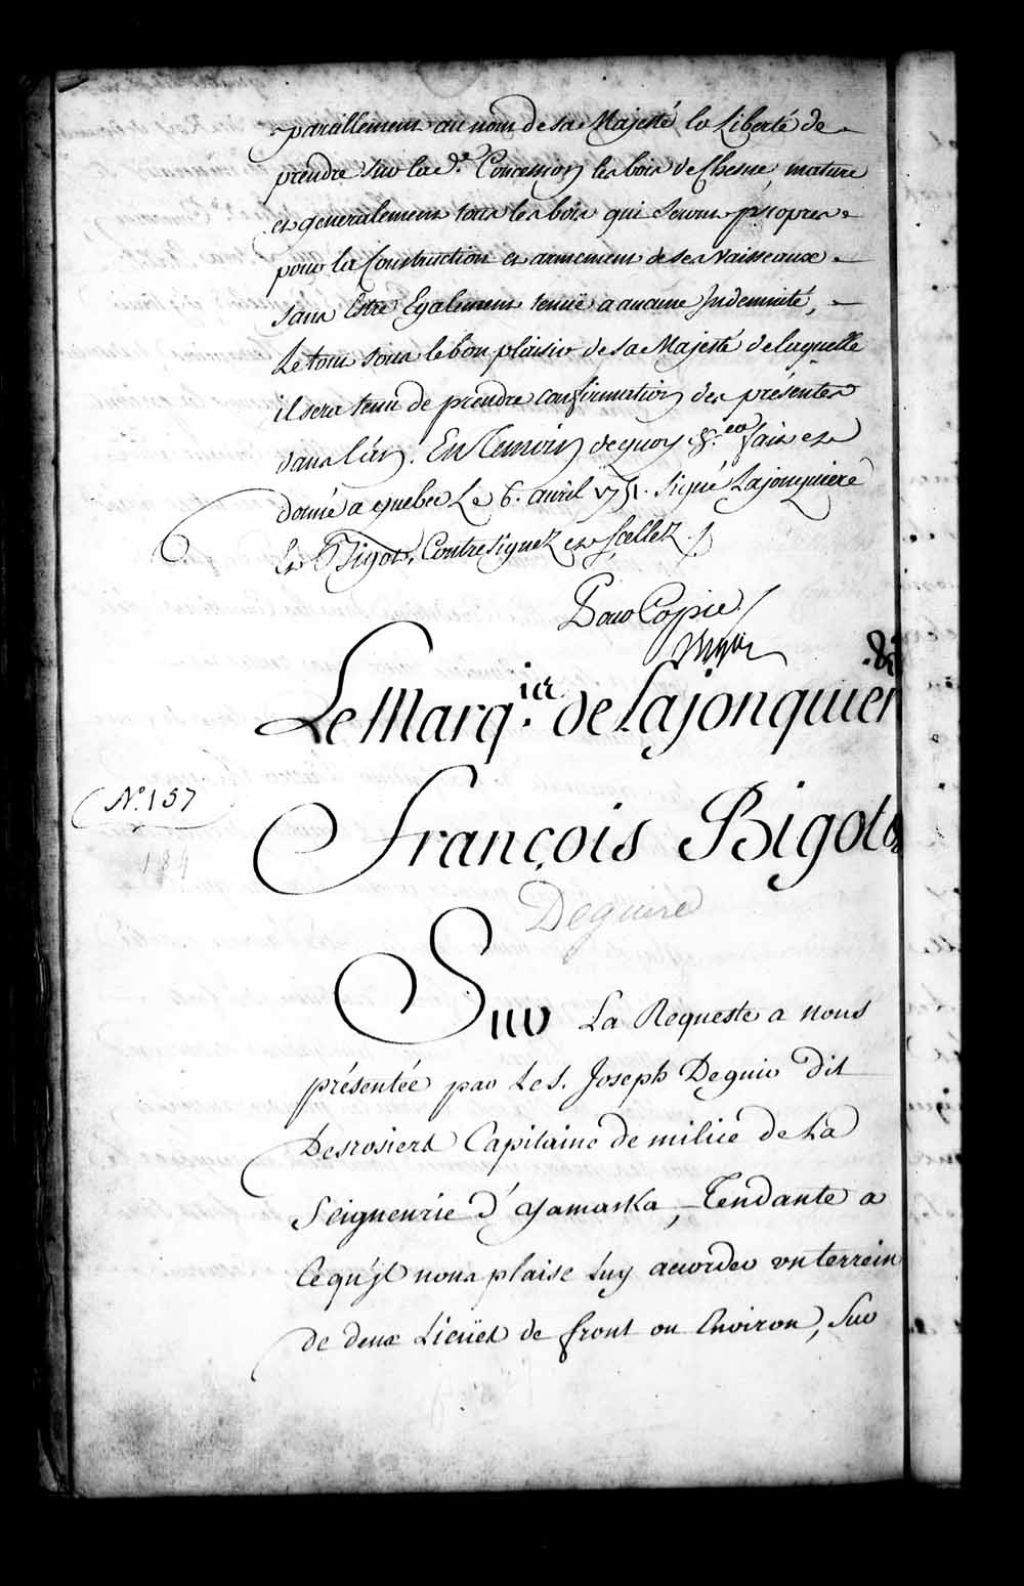 pareillement au nom de sa Majesté la Liberté de
prendre sur lad.e Concession les bois de Chesne, mature
et generalement tous les bois qui seront propres
pour la Construction et armement de ses Vaisseaux
sans Estre Egalement tenüe a aucune Indemnité,
Le tout sous le bon plaisir de sa Majesté de laquelle
il sera tenu de prendre confirmation des présentes
dans l'an. En Temoin de quoy &.ca fait et
donné a quebec Le 6. avril 1751. Signé Lajonquiere
Et Bigot, Contresignez et scellez ./.
Pour Copie ./
Le Marq.is de Lajonquier &
N.o 157
François Bigot
184
Deguire
Sur La Requeste a nous
présentée par Le S. Joseph Deguir dit
Desrosiers Capitaine de milice de La
Seigneurie d'yamaska, Tendante a
Ce qu'jl nous plaise Luy accorder un terrein
de deux Lieües de front ou Environ, Sur